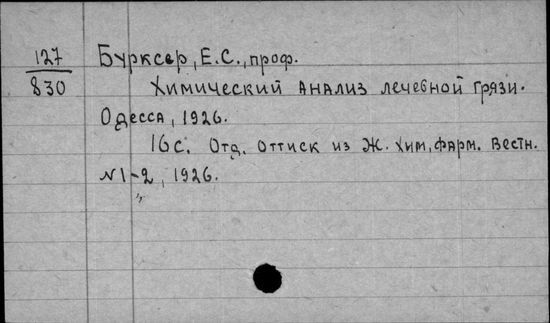 127
830
Бурксер, Е.С., проф.
Химический анализ лечебной грязи.
Одесса, 1926.
16 с. Отд. оттиск из Ж. хим, фарм. вестн.
№1-2, 1926.